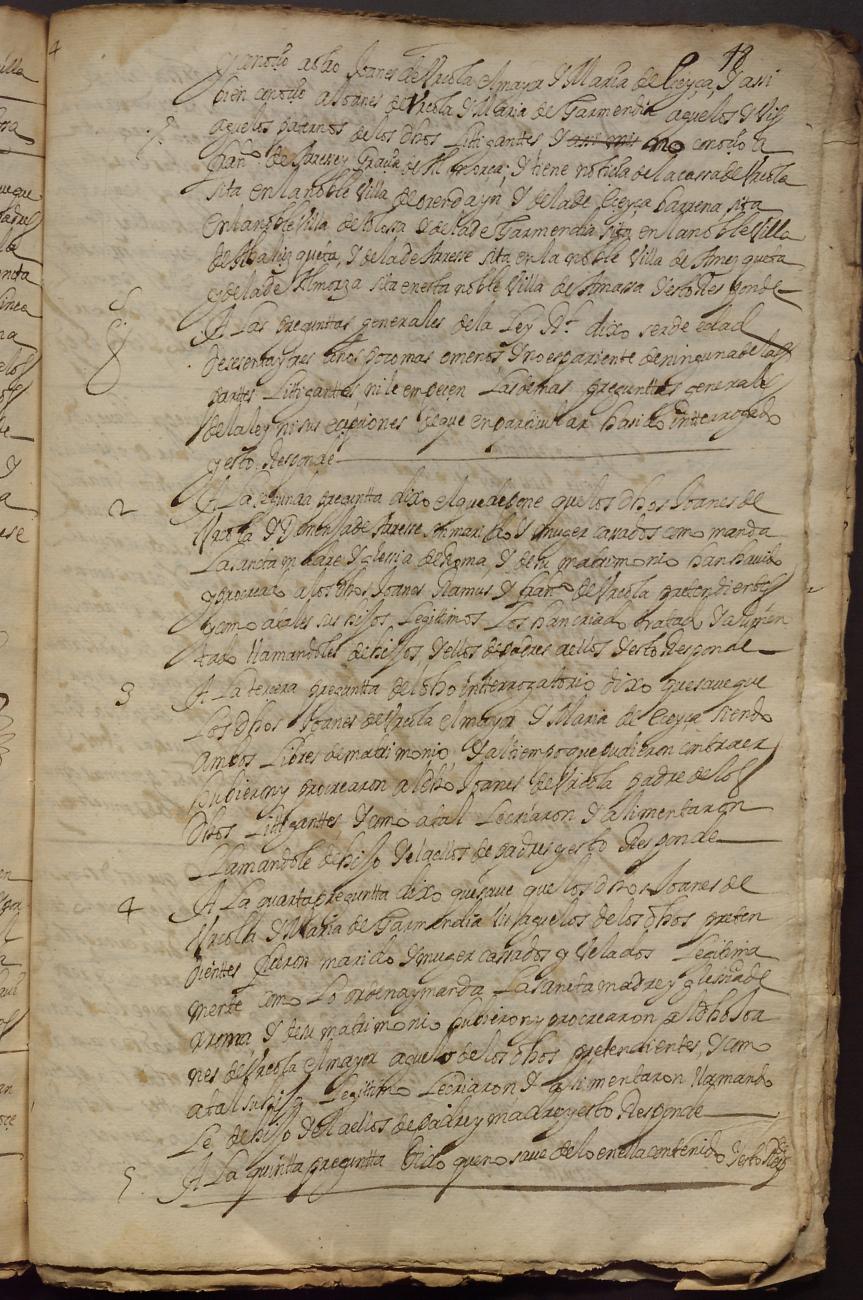 48
y conoçio a dho Joanes de Urcola el mayor y Maria de Çieyça, y assi
bien conoçio a Joanes de Urcola y Maria de Garmendia aguelos y vis
aguelos paternos de los dhos litigantes y no conoçio a
de Yarereçe y Graçia de Almorza; y tiene notiçia de la cassa de Urcola
sita en la noble Villa de orendayn y de la de Çieyça barrena sita
en la noble Villa de y de la de Garmendia sita en la noble Villa
de Albalizqueta, y de la de Yarerse sita en la noble Villa de Amezqueta
y de la de Almorza sita en esta noble Villa de Amassa y esto Responde
A Las preguntas generales de la Ley Rl dixo ser de edad
de sesenta y tres años poco mas o menos y no es pariente de ninguna de las
partes Litigantes ni le empeçen Las demas preguntas generales
de la ley ni sus exepçiones de que en particular ha sido Interrogado
y esto Responde
2 A La segunda pregunta dixo el que depone que los dhos Joanes de
Urcola y Domenja de Yarerse son marido y muger casados como manda
La sancta madre Yglesia de Roma, y de su matrimonio han havido
y procreado a los dhos Joanes Ramus y de Urcola pretendientes
y como a tales sus hijos Legitimos Los han criado tratado y alimen
tado llamandoles de hijos, y ellos de padres a ellos y esto Responde
3 A La tercera pregunta del dho interrogatorio dixo que save que
Los dhos Joanes de Urcola el mayor y Maria de Çieyça siendo
ambos Libres de matrimonio, y al tiempo que pudieron contraer
hubieron y procrearon al dho Joanes de Urcola padre de los
dhos Litigantes y como a tal Le criaron y alimentaron
Llamandole de hijo y el a ellos de padres y esto Responde
4 A La quarta pregunta dixo que save que los dhos Joanes de
Urcola y Maria de Garmendia visaguelos de los dhos preten
dientes fueron marido y muger cassados y velados Legitima
mente como Lo ordena y manda La sancta madre yglesia de
rroma y de su matrimonio hubieron y procrearon al dho Joa
nes de Urcola el mayor aguelo de los dhos pretendientes, y como
a tal su hijo Legitimo Le criaron y alimentaron llamando
Le de hijo y el a ellos de padre y madre y esto Responde
5 A La quinta pregunta dixo que no save de lo en ella contenido y esto Resde